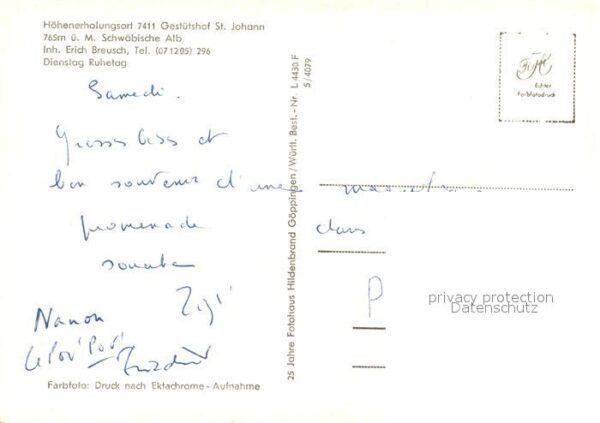 Höhenerholungsort 7411 Gestütshof St. Johann
765m ü. M. Schwäbische Alb
Inh. Erich Breusch, Tel. (07 12 05) 296
Dienstag Ruhetag
Samedi.
Grosses bises et
bon souvenir d'une
promenade dans
Zizi
Nanou
Farbfoto: Druck nach Ektachrome-Aufnahme
25 Jahre Fotohaus Hildenbrand Göppingen/Württ. Best.-Nr. L 4430 F
5/4079
Echter
Farbfotodruck
P
privacy protection
Datenschutz